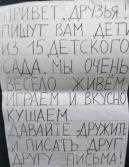 ПРИВЕТ, ДРУЗЬЯ!
ПИШУТ ВАМ ДЕТИ
ИЗ 15 ДЕТСКОГО
САДА, МЫ ОЧЕНЬ
ВЕСЕЛО ЖИВЕМ
ИГРАЕМ И ВКУСНО
КУШАЕМ.
ДАВАЙТЕ ДРУЖИТЬ
И ПИСАТЬ ДРУГ
ДРУГУ ПИСЬМА